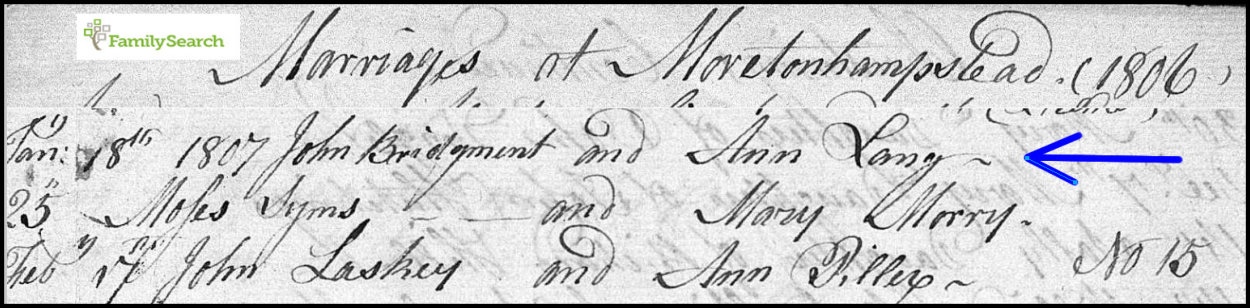 FamilySearch
Marriages at Moretonhampstead. (1806)
Jany: 18th 1807 John Bridgment and Ann Lang
25 Moses Syms and Mary Morry.
Feby 17 John Laskey and Ann Pilley No 15